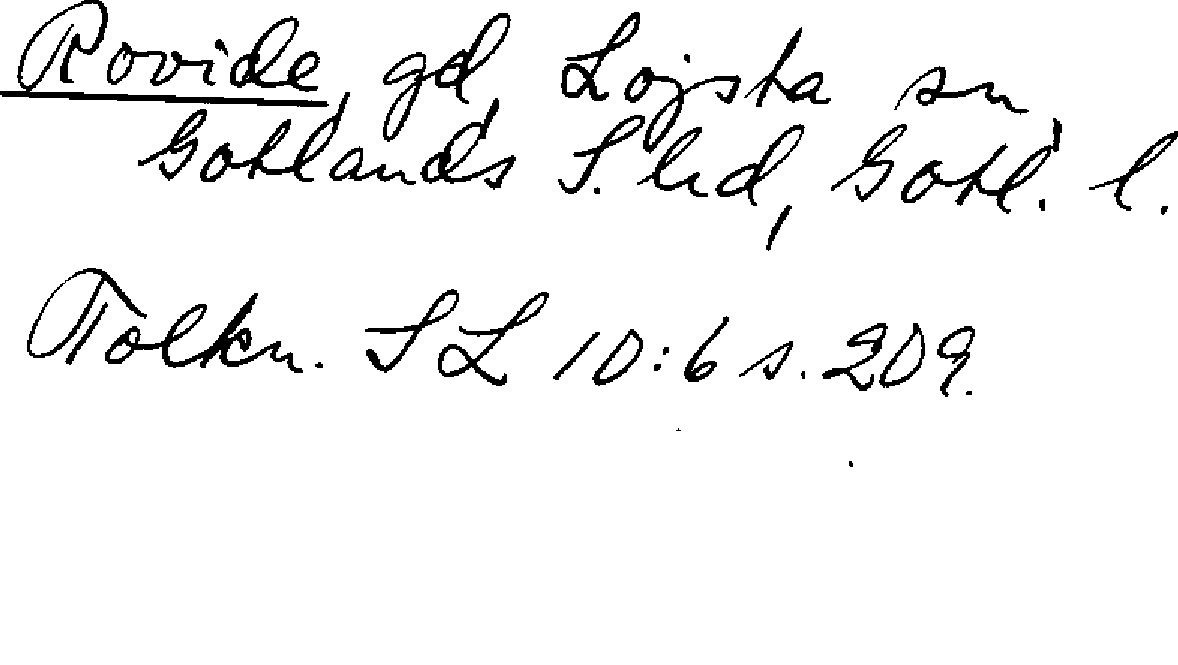 Rovide, gd, Lojsta sn,
Gotlands S. hd, Gotl. l.
Tolkn. SL 10:6 s. 209.